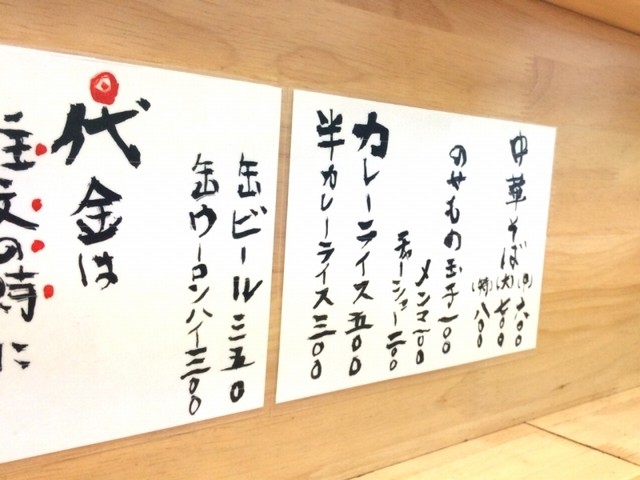 中華そば(中)六〇〇
(大)七〇〇
(特)八〇〇
のせもの玉子一〇〇
メンマ一〇〇
チャーシュー二〇〇
カレーライス五〇〇
半カレーライス三〇〇
缶ビール三五〇
缶ウーロンハイ三〇〇
代金は
注文の時に